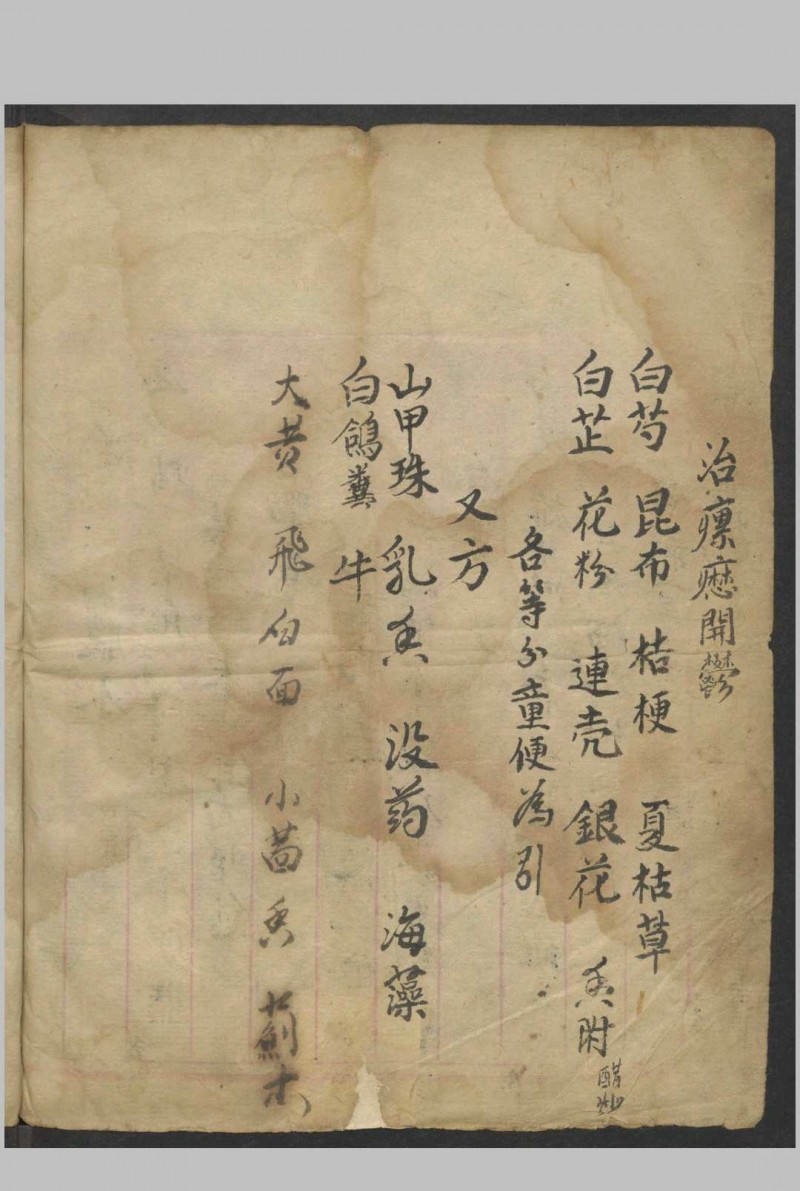 治瘰癧開鬱
白芍 昆布 桔梗 夏枯草
白芷 花粉 連壳 銀花 香附 醋炒
各等分童便為引
又方
山甲珠 乳香 没药 海藻
白鴿糞 牛
大黄 飛白面 小茴香 蘇木